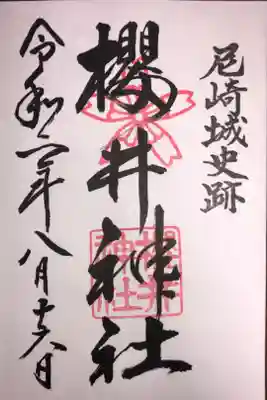 尼崎城史跡
櫻井神社
令和六年八月十六日
櫻井神社